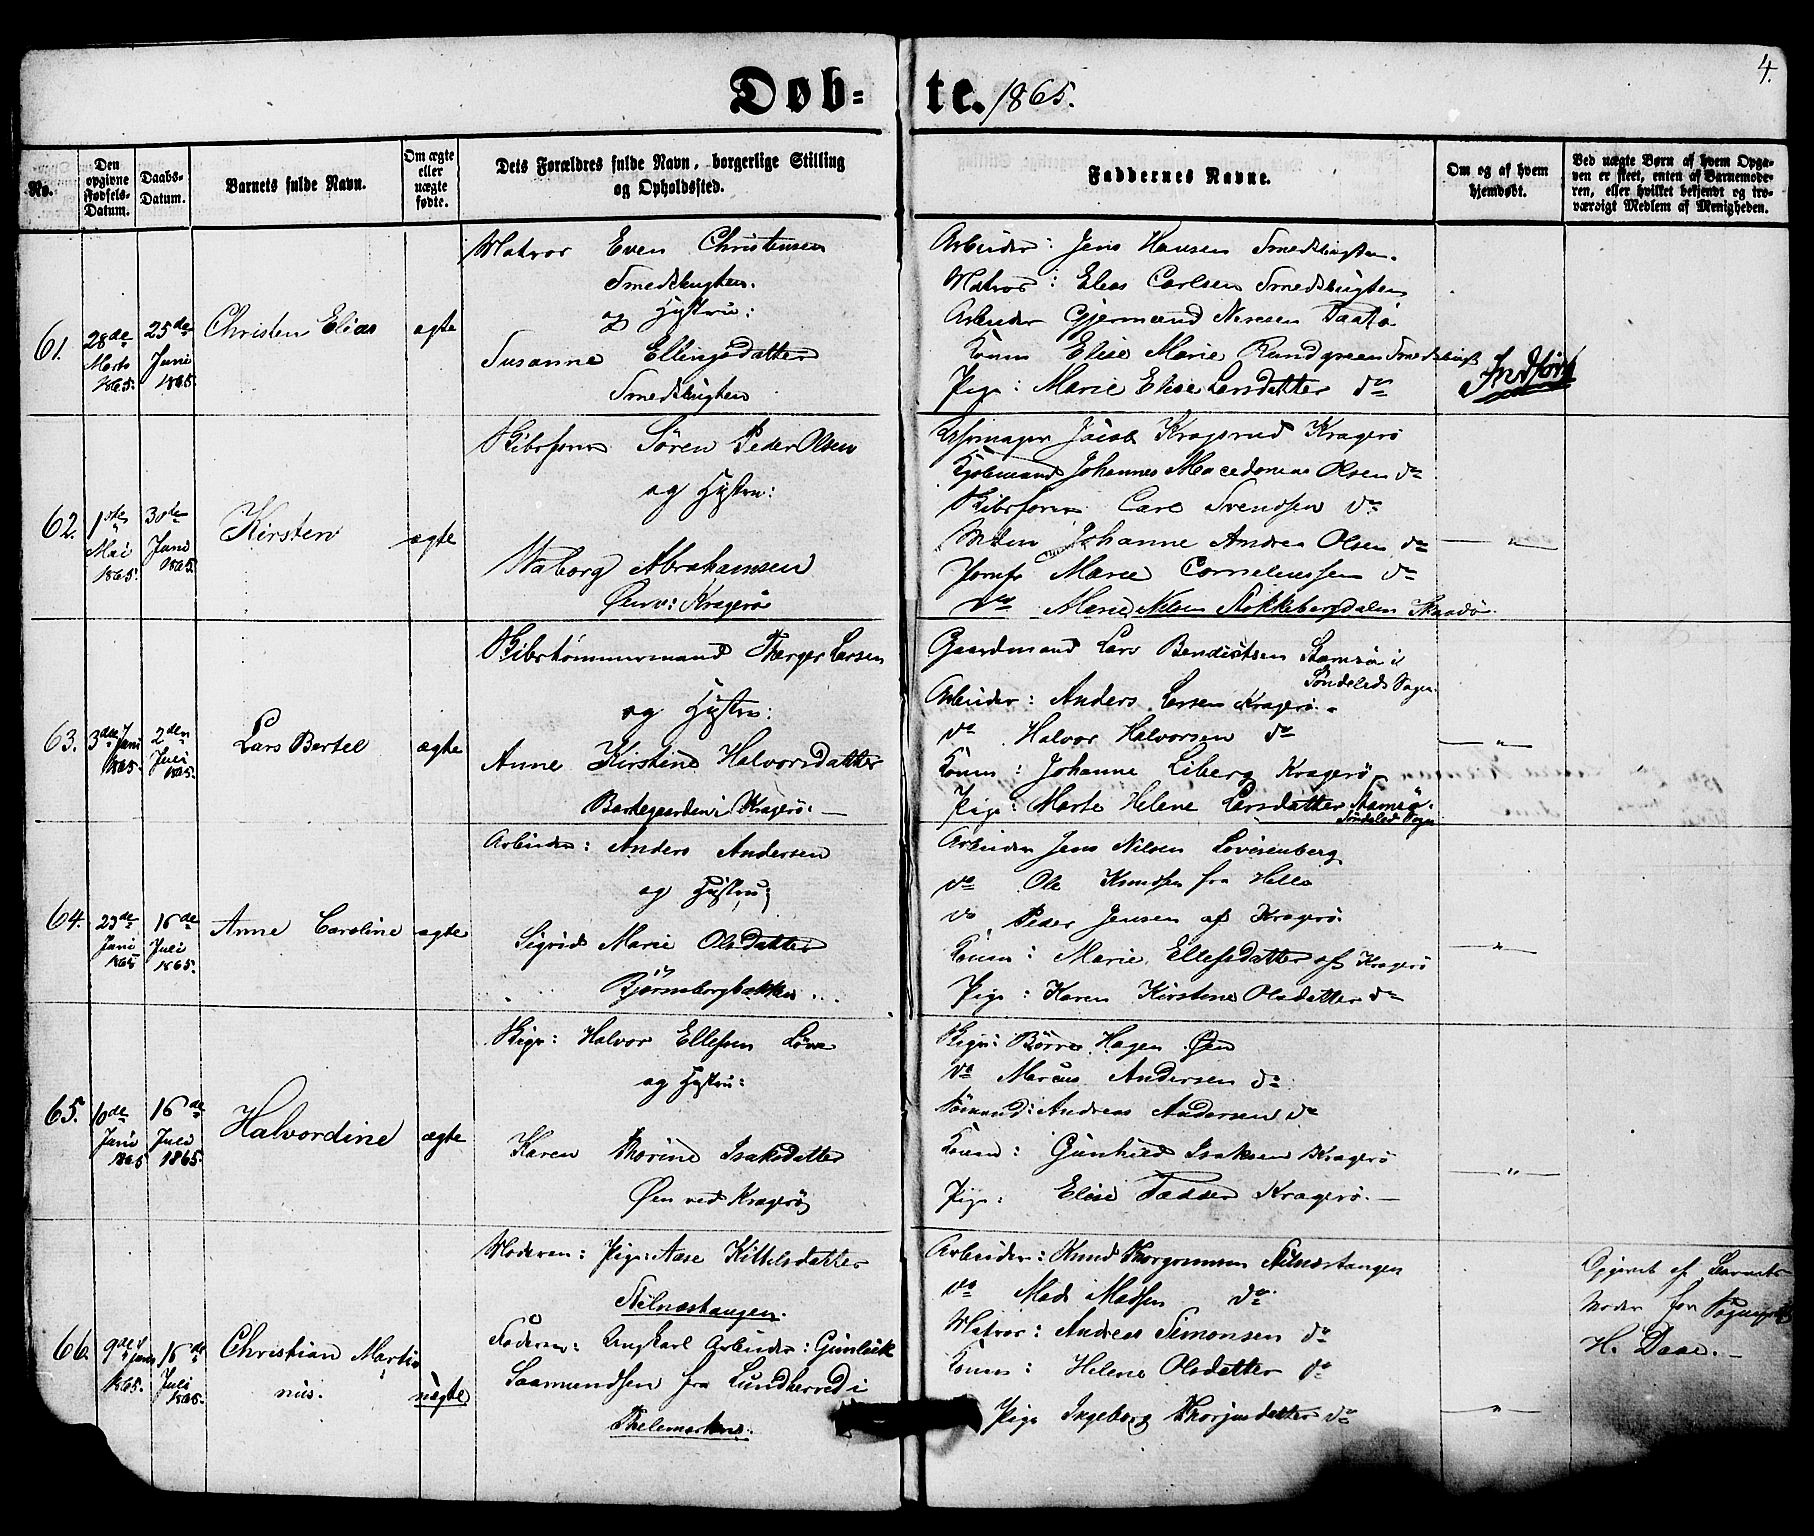 4.
Døb- te. 1865.
No.
Den opgivne Fødsels-Datum.
Daabs-Datum.
Barnets fulde Navn.
Om ægte eller uægte fødte.
Dets Forældres fulde Navn, borgerlige Stilling og Opholdssted.
Faddernes Navne.
Om og af hvem hjemdøbt.
Ved uægte Børn af hvem Opgaven er skeet, enten af Barnemoderen, eller hvilket bekjendt og troværdigt Medlem af Menigheden.
61.
28de Marts 1865.
25de Juni 1865.
Christen Elias
ægte
Matros Even Christensen
Smedsbugten.
og Hystru:
Susanne Ellingsdatter
Smedsbugten
Arbeider: Jens Hansen Smedsbugten.
Matros: Elias Carlsen Smedsbugten
Arbeider Gjermund Nilsen Taatø
Konen Elise Marie Rundgreen Smedsbugt
Pige: Marie Elise Larsdatter do
Indført
62.
1ste Mai 1865.
30te Juni 1865.
Kirsten
ægte
Skibsfører Søren Peder Olsen
og Hystru:
Waborg Abrahamsen
Øen v: Kragerø
Jacob Kragsrud Kragerø
Kjøbmand Johannes Macedonias Olsen do
Skibsfører Carl Svendsen do
Johanne Andrea Olsen do
Jomfr Marie Corneliussen do
do Marie Nilsen Stokkebergdalen Skaadø
— " —
63.
3die Juni 1865.
2den Juli 1865.
Lars Bertel
ægte
Skibstømmermand Therger Larsen
og Hystru:
Anne Kirstine Halvorsdatter
Barthegaarden i Kragerø. —
Gaardmand Lars Bendictsen Stamsø i
Søndeleds Sogn.
Arbeider: Anders Larsen Kragerø.
do Halvor Halvorsen do
Konen: Johanne Liberg Kragerø
Pige: Marte Helene Larsdatter Stamsø.
Søndeled Sogn
— " —
64.
29de Juni 1865
16de Juli 1865.
Anne Caroline
ægte
Arbeider: Anders Andersen
og Hystru;
Sigrid Marie Olsdatter
Bjørnsborgbakken
Arbeider Jens Nilsen Lovisenberg
do Ole Knudsen fra Helle
do Peder Jensen af Kragerø.
Konen: Marie Ellefsdatter af Kragerø
Pige: Karen Kirstine Olsdatter do
— " —
65.
10de Juni 1865
16de Juli 1865.
Halvordine
ægte
Skipr: Halvor Ellefsen Løvaas
og Hystru:
Karen Thorine Isaksdatter
Øen ved Kragerø
Skipr: Børre Hagen Øen
do Marcus Andersen do
Sømand: Andreas Andersen do
Konen: Gunhild Isaksen Kragerø
Pige: Elise Tædder Kragerø. —
— " —
66.
9de Juni 1865.
16de Juli 1865.
Christian Martinius.
uægte
Moderen: Pige: Aase Kittelsdatter
Stilnæstangen.
Faderen: Ungkarl Arbeider: Gunleik
Saamundsen fra Lundherred i
Thelemarken.
Arbeider: Knud Thorgrimsen Stilnæstangen
do Mads Madsen do
Matros: Andreas Simonsen do
Konen: Helene Olsdatter do
Pige Ingeborg Thorjusdatter do
— " —
Opgivet af Barnets
Moder for Sogneprest
H. Daae. —